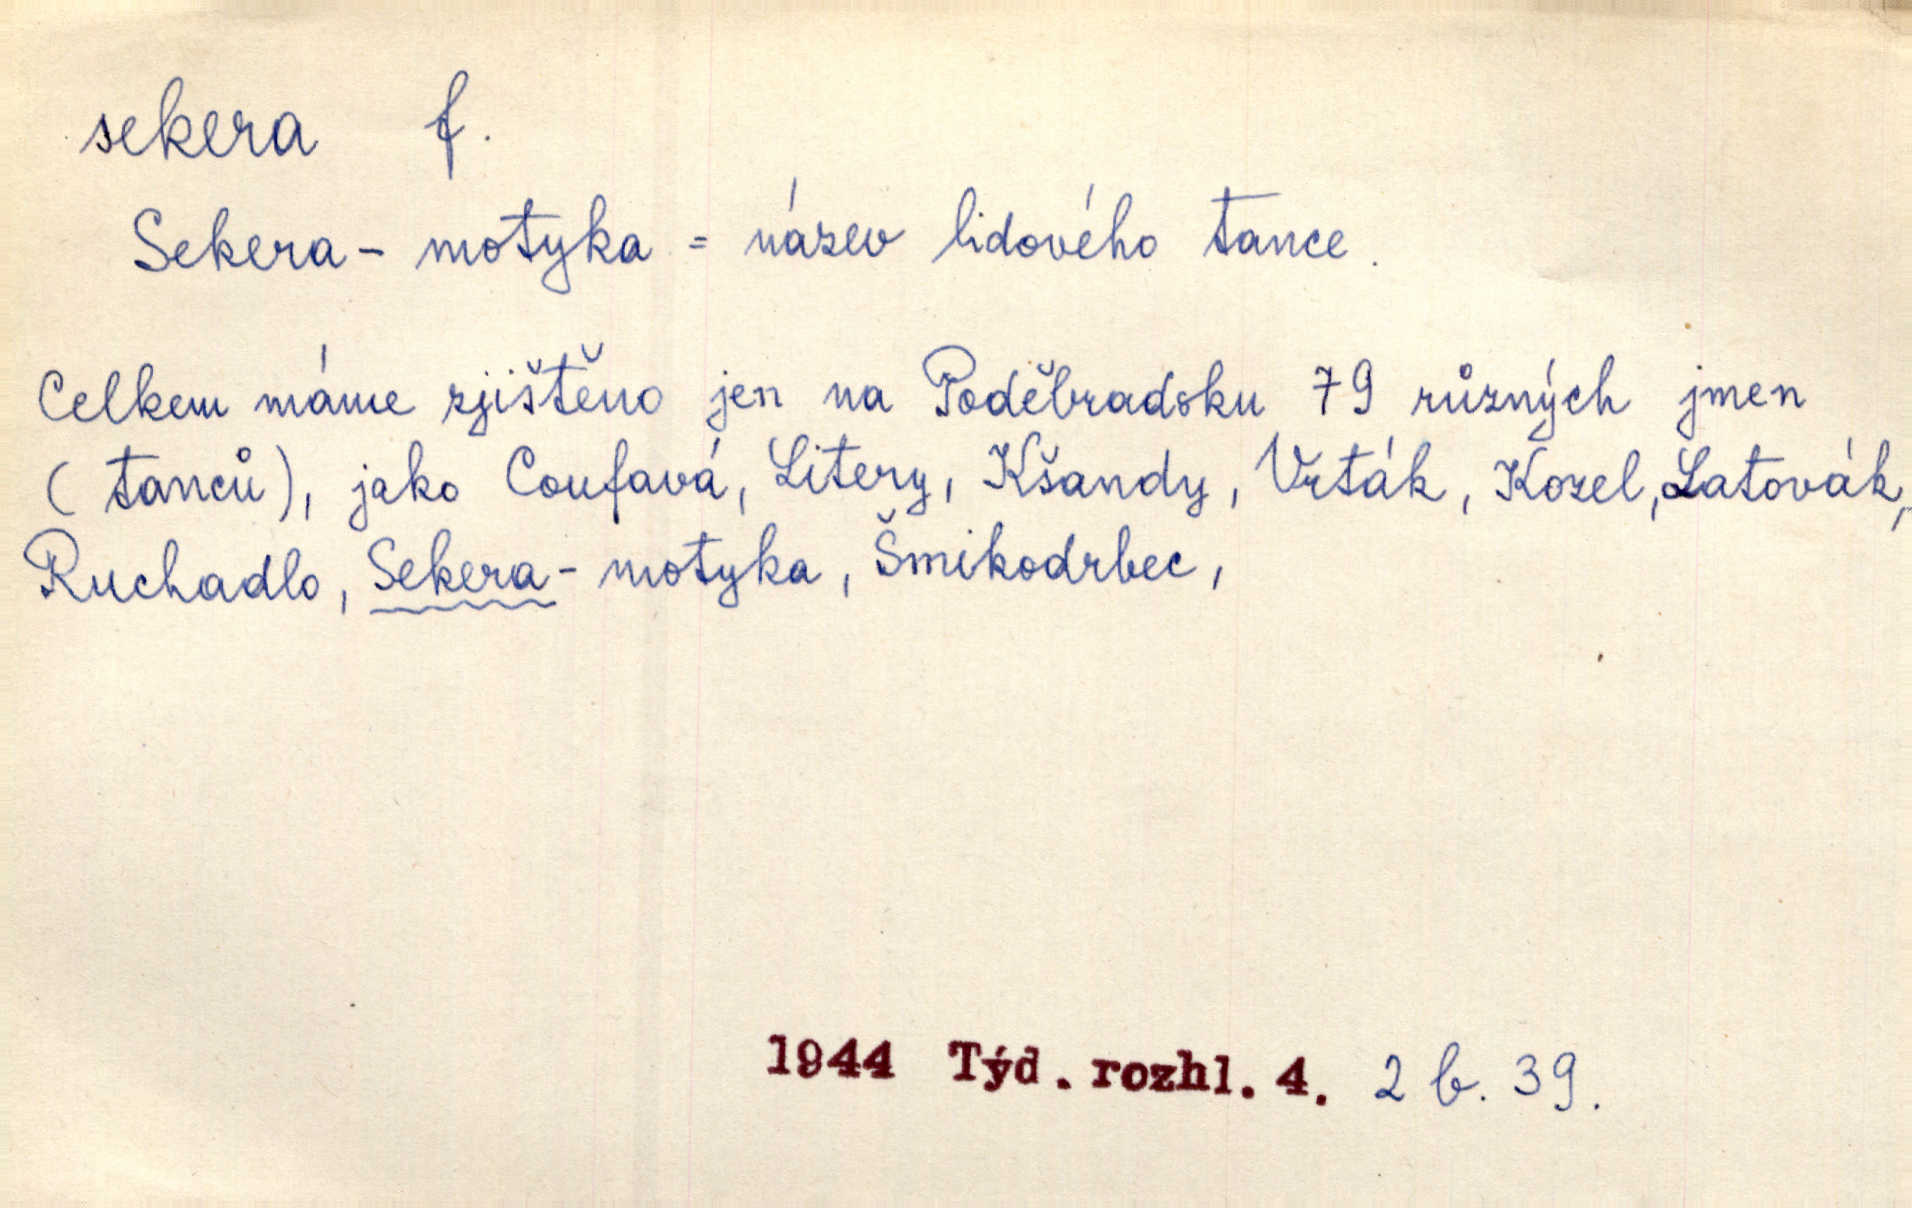 sekera f.
Sekera - motyka = název lidového tance.
Celkem máme zjištěno jen na Poděbradsku 79 různých jmen
(tanců), jako Coufavá, Litery, Kšandy, Vrták, Kozel, Latovák,
Ruchadlo, Sekera - motyka, Šmikodrbec,
1944 Týd. rozhl. 4. 2 b. 39.